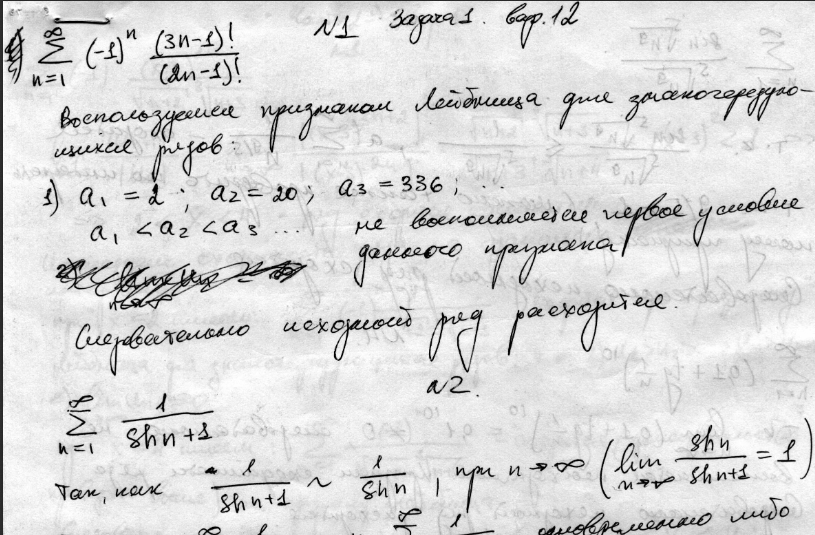 N1 Задача 1. вар. 12
∑_{n=1}^{∞} (-1)^n (3n-1)! / (2n-1)!
Воспользуемся признаком Лейбница для знакочередую-
щихся рядов:
1) a₁ = 2 ; a₂ = 20 ; a₃ = 336 ; ...
a₁ < a₂ < a₃ ... не восполняется первое условие
данного признака
Следовательно исходный ряд расходится.
N2.
∑_{n=1}^{∞} 1 / (sh n + 1)
Так, как 1 / (sh n + 1) ~ 1 / sh n , при n → ∞ ( lim_{n→∞} sh n / (sh n + 1) = 1 )
одновременно либо